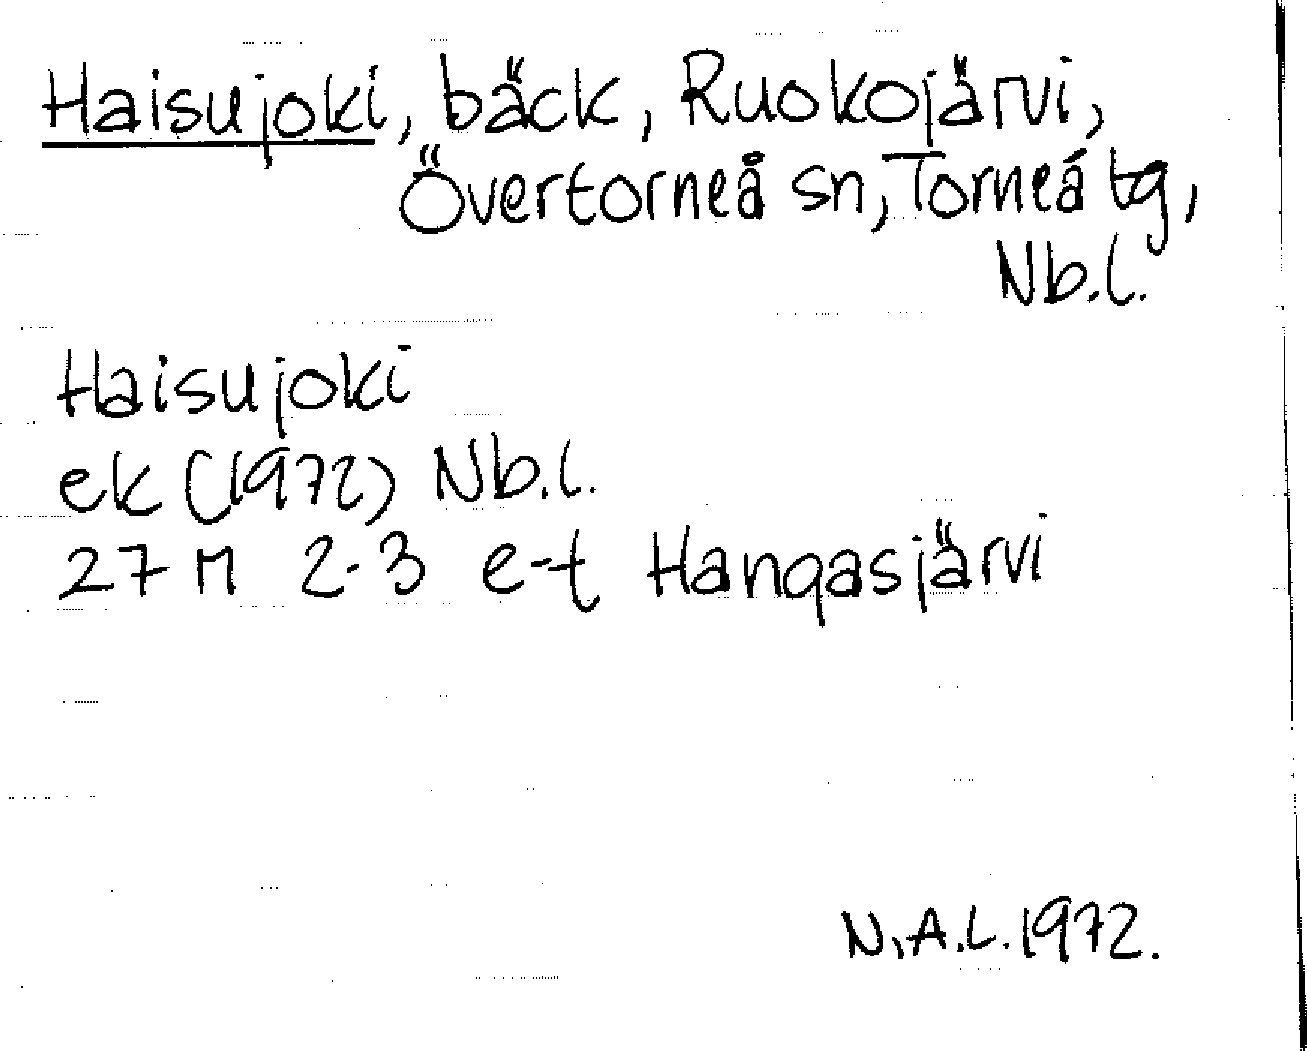 Haisujoki, bäck, Ruokojärvi,
Övertorneå sn, Torneå tg,
Nb.l.
Haisujoki
ek (1972) Nb.l.
27 M 2-3 e-t Hangasjärvi
N.A.L. 1972.